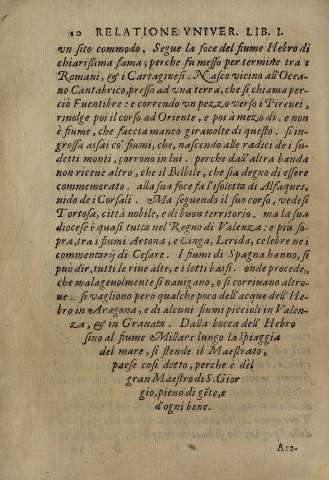 10 RELATIONE VNIVER. LIB. I.
vn sito commodo. Segue la foce del fiume Hebro di
chiarissima fama; perche fu messo per termine tra i
Romani, & i Cartaginesi. Nasce vicino all'Ocea-
no Cantabrico, presso ad vna terra, che si chiama per-
ciò Fuentibre: e correndo vn pezzo verso i Pirenei,
riuolge poi il corso ad Oriente, e poi à mezo dì. e non
è fiume, che faccia manco girauolte di questo. si in-
grossa assai cō fiumi, che, nascendo alle radici de i su-
detti monti, corrono in lui. perche dall'altra banda
non riceue altro, che il Bilbile, che sia degno di essere
commemorato. alla sua foce fa l'isoletta di Alfaques,
nido de i Corsali. Ma seguendo il suo corso, vedesi
Tortosa, città nobile, e di buon territorio. ma la sua
diocese è quasi tutta nel Regno di Valenza: e più so-
pra, tra i fiumi Aetona, e Cinga, Lerida, celebre ne i
commentarij di Cesare. I fiumi di Spagna hanno, si
può dir, tutti le riue alte, e i letti bassi. onde procede,
che malageuolmente si nauigano, o si corriuano altro-
ue. si vagliono però qualche poco dell'acque dell'He-
bro in Aragona, e di alcuni fiumi piccioli in Valen-
za, & in Granata. Dalla bocca dell'Hebro
sino al fiume Millars lungo la spiaggia
del mare, si stende il Maestrato,
paese così detto, perche è del
gran Maestro di S. Gior
gio, pieno di gēte, e
d'ogni bene.
Ara-